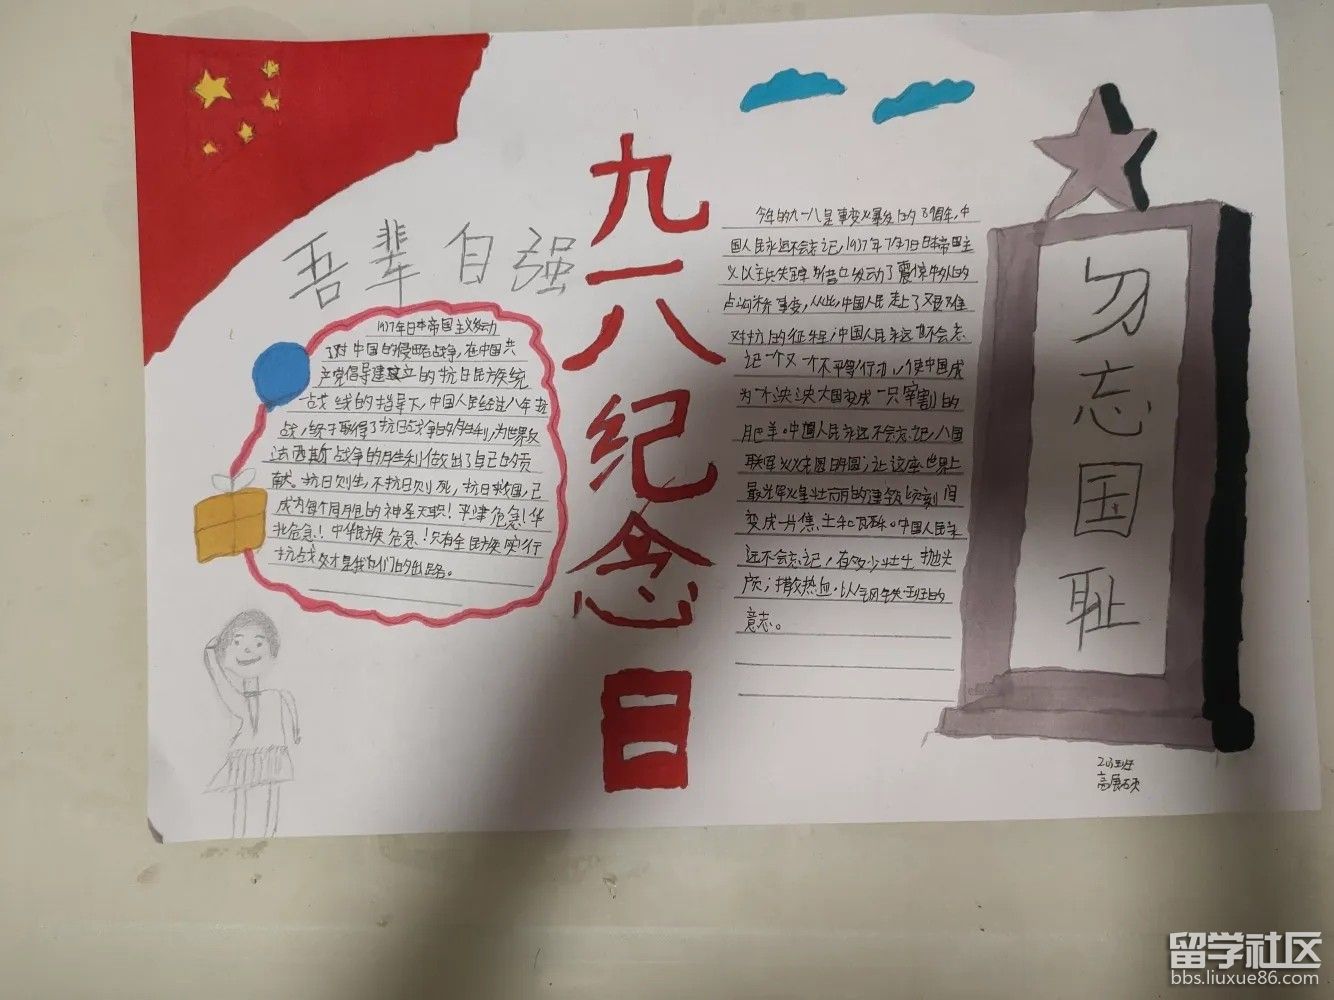 吾辈自强
九一八纪念日
1937年日本帝国主义发动
了对中国的侵略战争,在中国共
产党倡导建立的抗日民族统
一战线的指导下,中国人民经过八年
战,终于取得了抗日战争的胜利,为世界反
法西斯战争的胜利做出了自己的贡
献。抗日则生,不抗日则死,抗日救国,已
成为每个同胞的神圣天职!平津危急!华
北危急!中华民族危急!只有全民族实行
抗战才是我们的出路。
今年的九一八是事变爆发的周年,中
国人民永远不会忘记,1937年7月7日日本帝国主
义以士兵失踪为借口发动了震惊中外的
卢沟桥事变,从此,中国人民走上了艰难
对抗的征程;中国人民永远都不会忘
记一个又一个不平等行动,使中国成
为一个泱泱大国变成一只宰割的
肥羊。中国人民永远不会忘记,八国
联军火烧圆明圆;让这座世界上
最光辉壮丽的建筑顷刻间
变成一片焦土和瓦砾。中国人民永
远不会忘记,有多少壮士抛头
颅;撒热血,以钢铁班的
意志。
勿忘国耻
203班
留学社区
bbs.liuxue86.com